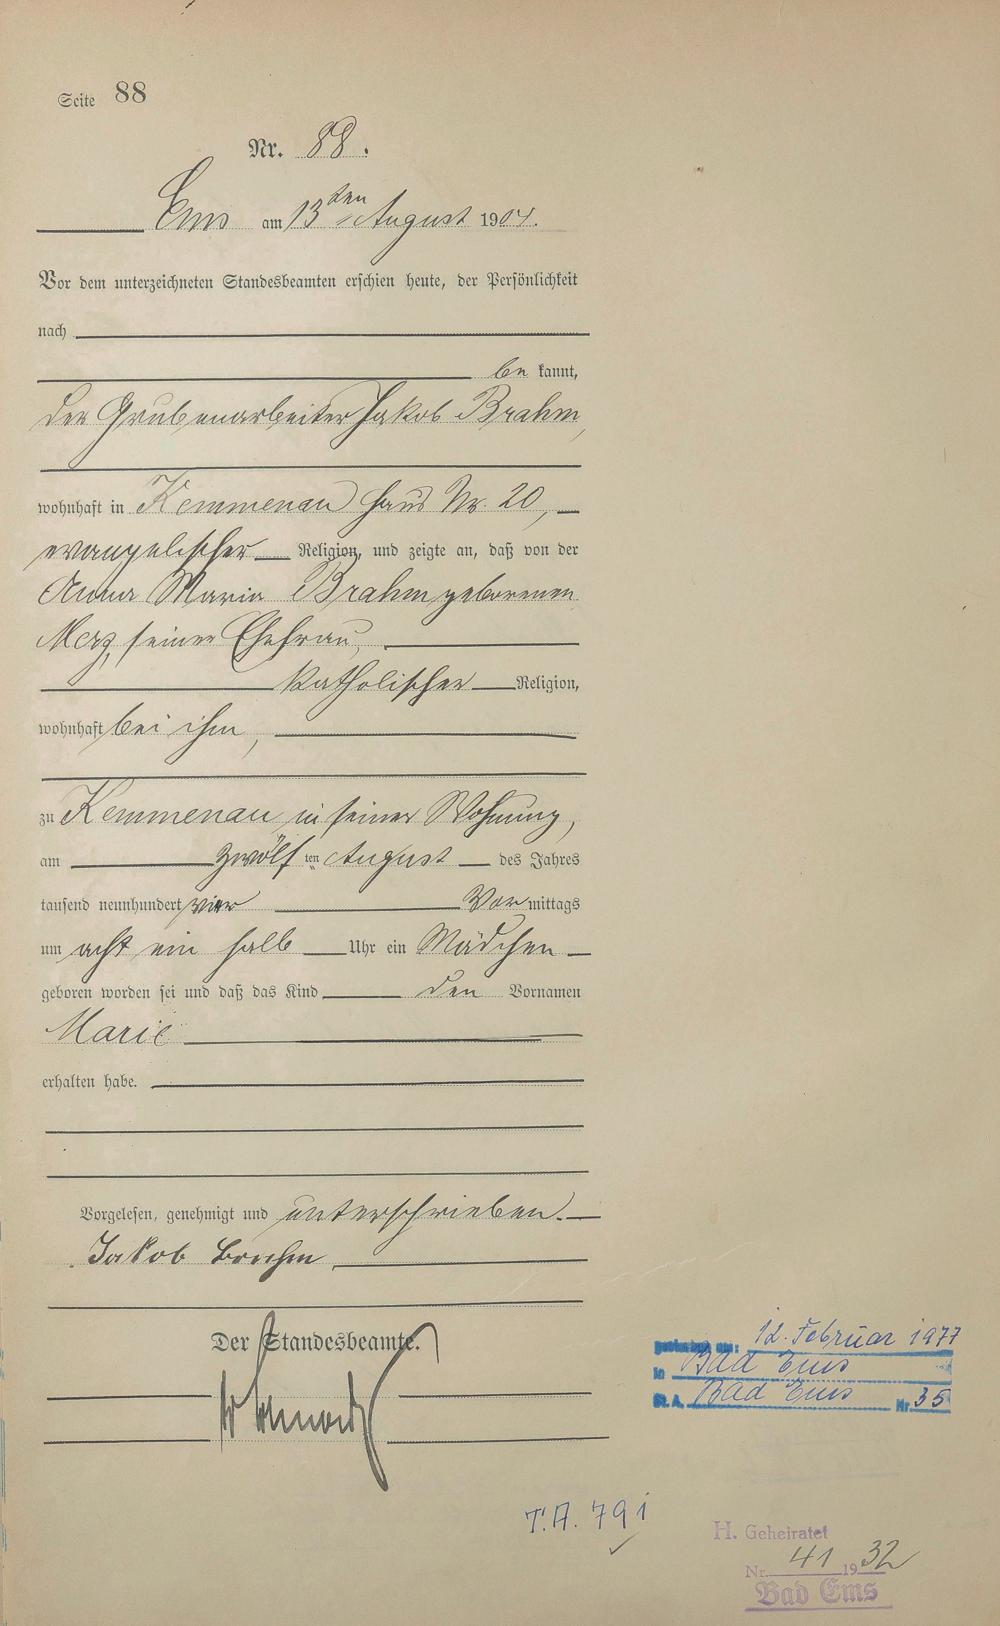 Seite 88
Nr. 88.
Ems am 13ten August 1904.
Vor dem unterzeichneten Standesbeamten erschien heute, der Persönlichkeit
nach
be kannt,
der Grubenarbeiter Jakob Brahm,
wohnhaft in Kemmenau Haus Nr. 20,
evangelischer Religion, und zeigte an, daß von der
Anna Maria Brahm geborenen
Merz, seiner Ehefrau,
katholischer Religion,
wohnhaft bei ihm,
zu Kemmenau in seiner Wohnung,
am zwölf ten August des Jahres
tausend neunhundert vier Vor mittags
um acht ein halb Uhr ein Mädchen
geboren worden sei und daß das Kind den Vornamen
Marie
erhalten habe.
Vorgelesen, genehmigt und unterschrieben.
Jakob Brahm
Der Standesbeamte.
12. Februar 1977
in Bad Ems
St. A. Bad Ems Nr. 35
T.A. 791
H. Geheiratet
Nr. 41 1932
Bad Ems